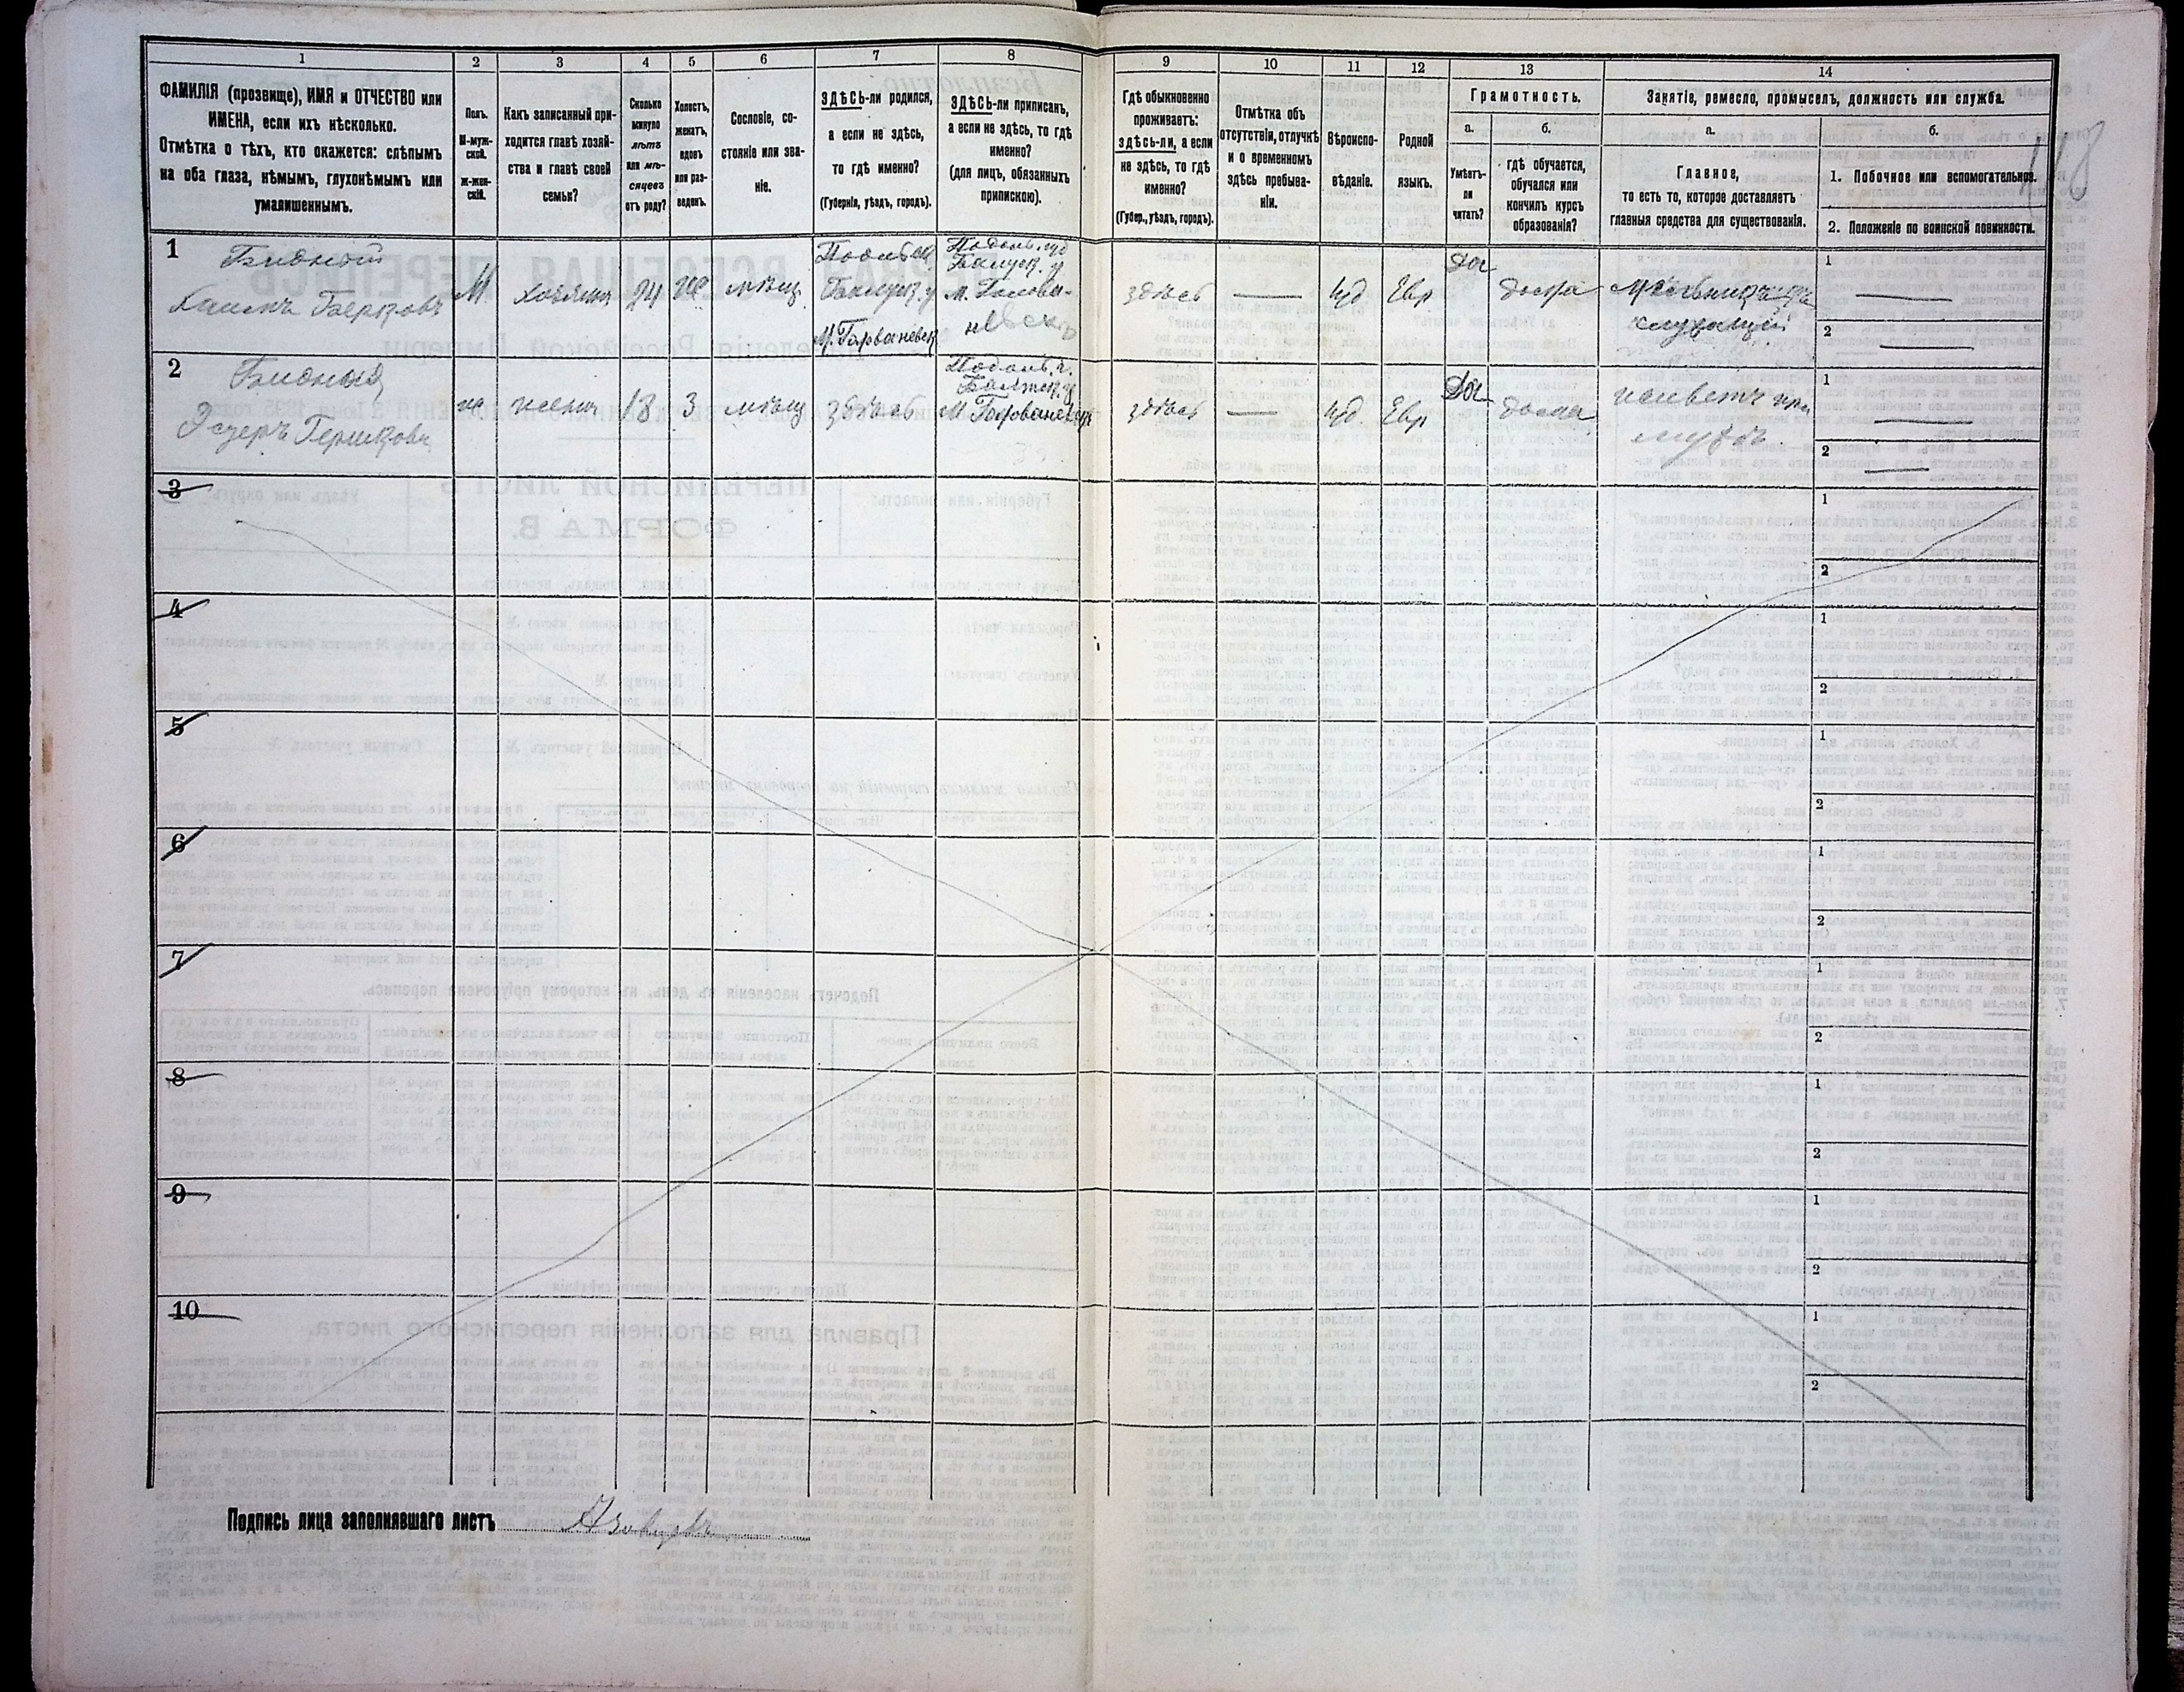 1
2
3
4
5
6
7
8
9
10
11
12
13
14
ФАМИЛІЯ (прозвище), ИМЯ и ОТЧЕСТВО или
ИМЕНА, если ихъ нѣсколько.
Отмѣтка о тѣхъ, кто окажется: слѣпымъ
на оба глаза, нѣмымъ, глухонѣмымъ или
умалишеннымъ.
Полъ.
М-муж-
ской.
Ж-жен-
скій.
Какъ записанный при-
ходится главѣ хозяй-
ства и главѣ своей
семьи?
Сколько
минуло
лѣтъ
или мѣ-
сяцевъ
отъ роду?
Холостъ,
женатъ,
вдовъ
или раз-
веденъ.
Сословіе, со-
стояніе или зва-
ніе.
ЗДѢСЬ-ли родился,
а если не здѣсь,
то гдѣ именно?
(Губернія, уѣздъ, городъ).
ЗДѢСЬ-ли приписанъ,
а если не здѣсь, то гдѣ
именно?
(для лицъ, обязанныхъ
припискою).
Гдѣ обыкновенно
проживаетъ:
здѣсь-ли, а если
не здѣсь, то гдѣ
именно?
(Губер., уѣздъ, городъ).
Отмѣтка объ
отсутствіи, отлучкѣ
и о временномъ
здѣсь пребыва-
ніи.
Вѣроиспо-
вѣданіе.
Родной
языкъ.
Грамотность.
а.
Умѣетъ-
ли
читать?
б.
гдѣ обучается,
обучался или
кончилъ курсъ
образованія?
Занятіе, ремесло, промыселъ, должность или служба.
а.
Главное,
то есть то, которое доставляетъ
главныя средства для существованія.
б.
1. Побочное или вспомогательное.
2. Положеніе по воинской повинности.
118
1
Бидный
Хаимъ Берковъ
М
хозяинъ
24
же
мѣщ
Балтск. у
М. Голованевск
Подольс. гу
Балтск. у
м. Голова-
невскъ
здѣсь
—
Іуд
Евр
Да
дома
служащій
1
—
2
—
2
Бидная
Эстеръ Гершкова
ж
жена
18
З
мѣщ
здѣсь
Подоль. г.
Балтск. у
М Голованевск
здѣсь
—
Іуд.
Евр
Да
дома
живетъ при
мужѣ.
1
—
2
—
3
1
2
4
1
2
5
1
2
6
1
2
7
1
2
8
1
2
9
1
2
10
1
2
Подпись лица заполнявшаго листъ